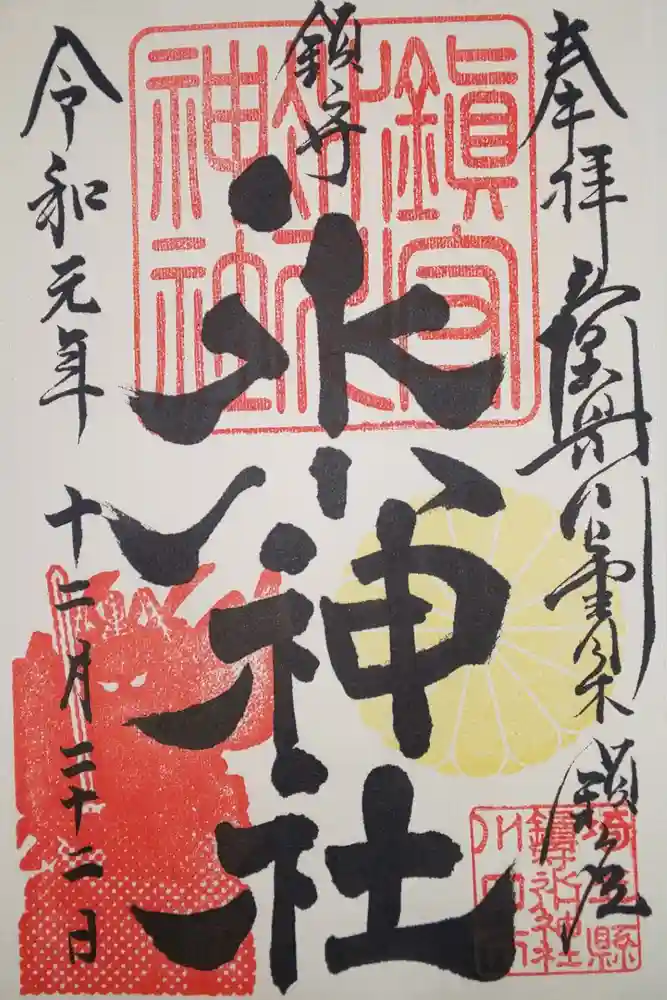 奉拝
鎮守
氷川神社
令和元年 十二月二十二日
鎮守氷川神社
埼玉縣
鎮守氷川神社
川口市